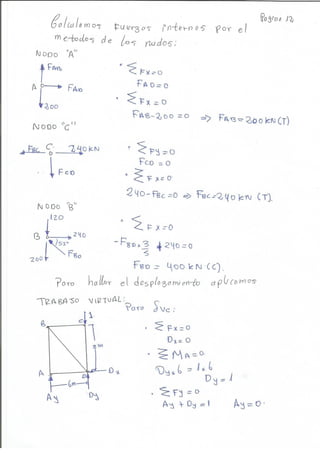 Pagina 12
Calculamos Fuerzas internas por el
metodos de los nudos:
NODO "A"
FAB
A
FAD
200
· ΣFx=0
FAD=0
· ΣFx=0
FAB-200=0 => FAB=200kN(T)
NODO "C"
FBC
C
240kN
FCD
· ΣFy=0
FCD=0
· ΣFx=0
240-FBC=0 => FBC=240kN (T).
NODO B"
120
B
240
53°
200
FBD
· ΣFx=0
-FBD×3/5 + 240=0
FBD = 400kN (C).
Para hallar el desplazamiento aplicamos
TRABAJO VIRTUAL:
Para δvc:
1
B
C
8m
A
D
Dx
6m
Ay
Dy
· ΣFx=0
Dx=0
· ΣMA=0
Dy×6 = 1×6
Dy=1
· ΣFy=0
Ay+Dy=1 Ay=0.